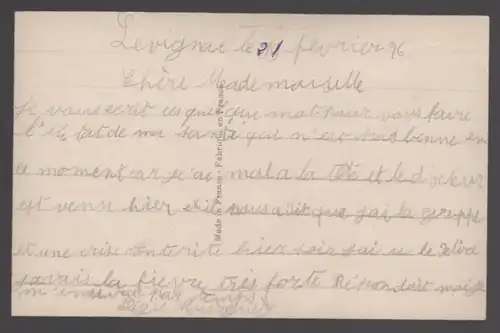 Levignac le 21 février 26
Chère Mademoiselle
Je vous ecrit ces quelque mot pour vous faire
l'état de ma santé qui n'est pas bonne en
ce moment car je ai mal a la tête et le docteur
est venu hier et il nous a dit que j'ai la grippe
et une crise enterite hier soir j'ai u de
javais la fievre très forte Répondait moi
m'ennuie pas
Made in France - Fabriqué en France